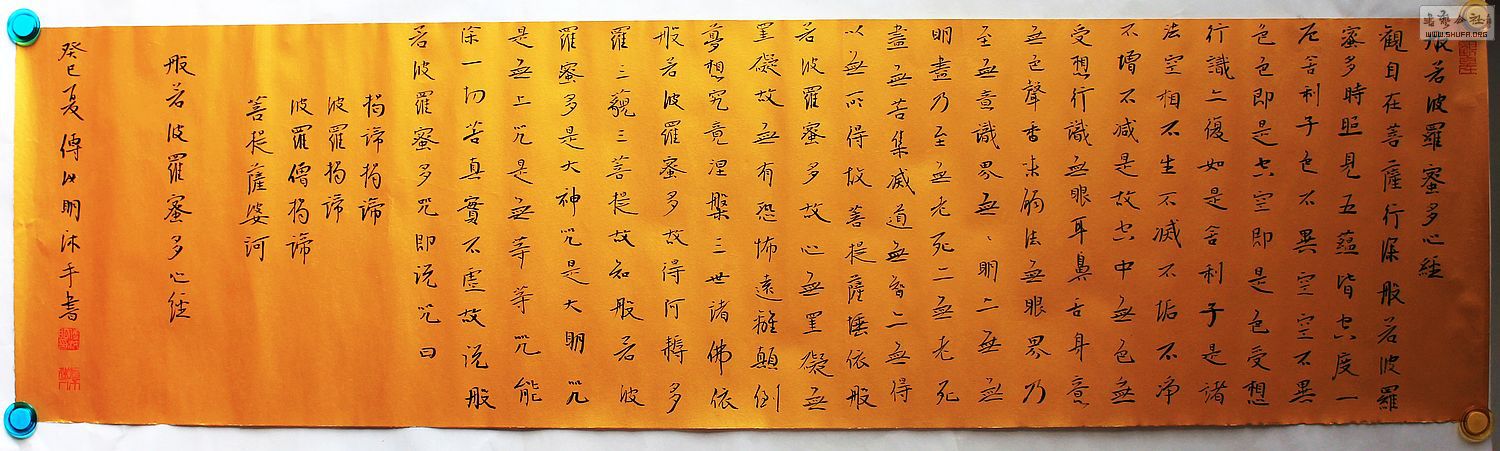 般若波羅蜜多心經
觀自在菩薩行深般若波羅
蜜多時照見五蘊皆空度一
厄舍利子色不異空空不異
色色即是空空即是色受想
行識亦復如是舍利子是諸
法空相不生不滅不垢不淨
不增不減是故空中無色無
受想行識無眼耳鼻舌身意
無色聲香味觸法無眼界乃
至無意識界無、明亦無無
明盡乃至無老死亦無老死
盡無苦集滅道無智亦無得
以無所得故菩提薩埵依般
若波羅蜜多故心無罣礙無
罣礙故無有恐怖遠離顛倒
夢想究竟涅槃三世諸佛依
般若波羅蜜多故得阿耨多
羅三藐三菩提故知般若波
羅蜜多是大神咒是大明咒
是無上咒是無等等咒能
除一切苦真實不虛故說般
若波羅蜜多咒即說咒曰
揭諦揭諦
波羅揭諦
波羅僧揭諦
菩提薩婆訶
般若波羅蜜多心經
癸巳夏傅明沐手書
书艺公社
WWW.SHUFA.ORG